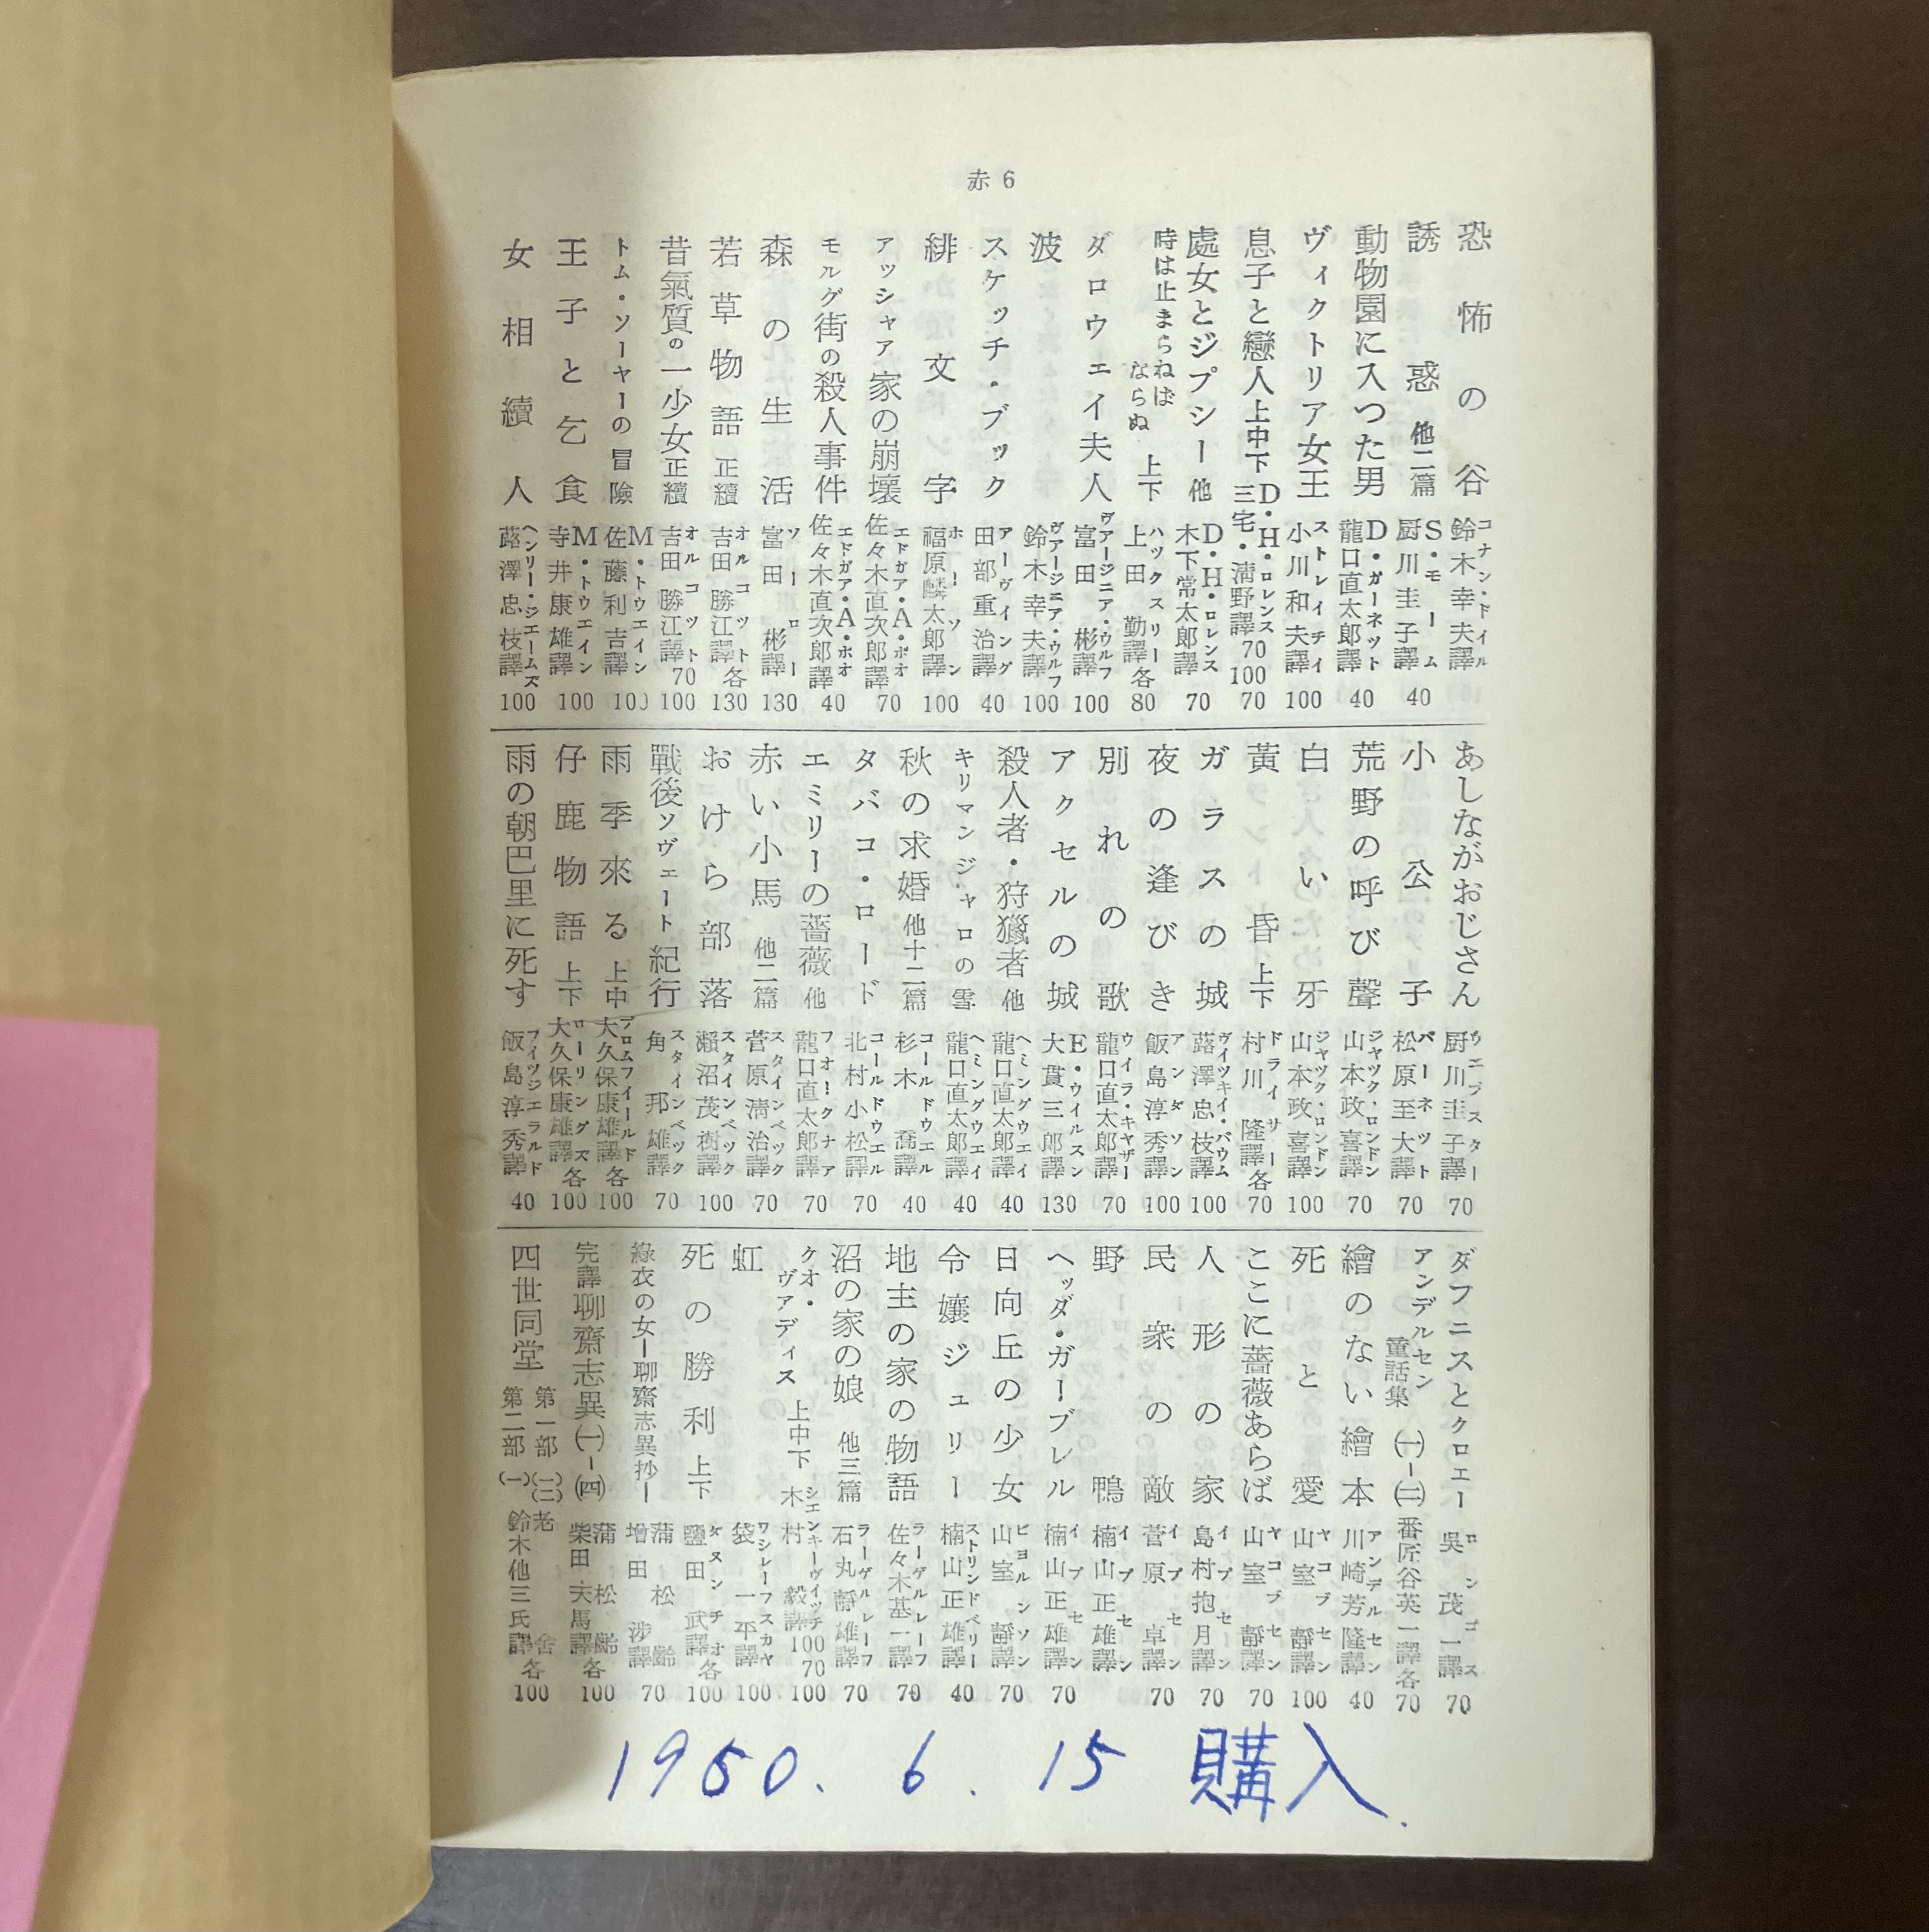 赤 6
恐怖の谷 コナン・ドイル 鈴木幸夫譯
誘惑 他二篇 S・モーム 厨川圭子譯 40
動物園に入つた男 D・ガーネット 龍口直太郎譯 40
ヴィクトリア女王 ストレイチイ 小川和夫譯 100
息子と戀人 上中下 D・H・ロレンス 三宅・淸野譯 70 100 70
處女とジプシー 他 D・H・ロレンス 木下常太郎譯 70
時は止まらねばならぬ 上下 ハックスリー 上田勤譯 各80
ダロウェイ夫人 ヴァージニア・ウルフ 富田彬譯 100
波 ヴァージニア・ウルフ 鈴木幸夫譯 100
スケッチ・ブック アーヴィング 田部重治譯 40
緋文字 ホーソン 福原麟太郎譯 100
アッシャア家の崩壞 エドガア・A・ポオ 佐々木直次郎譯 70
モルグ街の殺人事件 エドガア・A・ポオ 佐々木直次郎譯 40
森の生活 ソーロー 富田彬譯 130
若草物語 正續 オルコット 吉田勝江譯 各130
昔氣質の一少女 正續 オルコット 吉田勝江譯 70 100
トム・ソーヤーの冒險 M・トウエイン 佐藤利吉譯 100
王子と乞食 M・トウエイン 寺井康雄譯 100
女相續人 ヘンリー・ジェームズ 蕗澤忠枝譯 100
あしながおじさん ウェブスター 厨川圭子譯 70
小公子 バーネット 松原至大譯 70
荒野の呼び聲 ジャック・ロンドン 山本政喜譯 70
白い牙 ジャック・ロンドン 山本政喜譯 100
黃昏 上下 ドライサー 村川隆譯 各70
ガラスの城 ヴィツキイ・バウム 蕗澤忠枝譯 100
夜の逢びき アンダソン 飯島淳秀譯 100
別れの歌 ウイラ・キャザー 龍口直太郎譯 70
アクセルの城 E・ウイルスン 大貫三郎譯 130
殺人者・狩獵者 他 ヘミングウエイ 龍口直太郎譯 40
キリマンジャロの雪 ヘミングウエイ 龍口直太郎譯 40
秋の求婚 他十二篇 コールドウエル 杉木喬譯 40
タバコ・ロード コールドウエル 北村小松譯 70
エミリーの薔薇 他 フオークナア 龍口直太郎譯 70
赤い小馬 他二篇 スタインベック 菅原淸治譯 70
おけら部落 スタインベック 瀨沼茂樹譯 100
戰後ソヴェート紀行 スタインベック 角邦雄譯 70
雨季來る 上中 ブロムフイールド 大久保康雄譯 各100
仔鹿物語 上下 ローリングズ 大久保康雄譯 各100
雨の朝巴里に死す フイッツジェラルド 飯島淳秀譯 40
ダフニスとクロエー ロンゴス 吳茂一譯 70
アンデルセン童話集 (一)ー(三) 番匠谷英一譯 各70
繪のない繪本 アンデルセン 川崎芳隆譯 40
死と愛 ヤコブセン 山室靜譯 100
ここに薔薇あらば ヤコブセン 山室靜譯 70
人形の家 イプセン 島村抱月譯 70
民衆の敵 イプセン 菅原卓譯 70
野鴨 イプセン 楠山正雄譯
ヘッダ・ガーブレル イプセン 楠山正雄譯 70
日向丘の少女 ビヨルンソン 山室靜譯 70
令孃ジュリー ストリンドベリー 楠山正雄譯 40
地主の家の物語 ラーゲルレーフ 佐々木基一譯 70
沼の家の娘 他三篇 ラーゲルレーフ 石丸靜雄譯 70
クオ・ヴァディス 上中下 シェンキーヴィッチ 木村毅譯 100 70 100
虹 ワシレーフスカヤ 袋一平譯 100
死の勝利 上下 ダヌンチオ 鹽田武譯 各100
綠衣の女ー聊齋志異抄ー 蒲松齡 增田涉譯 70
完譯聊齋志異(一)ー(四) 蒲松齡 柴田天馬譯 各100
四世同堂 第一部(一)(二) 第二部(一) 老舍 鈴木他三氏譯 各100
1950. 6. 15 購入.